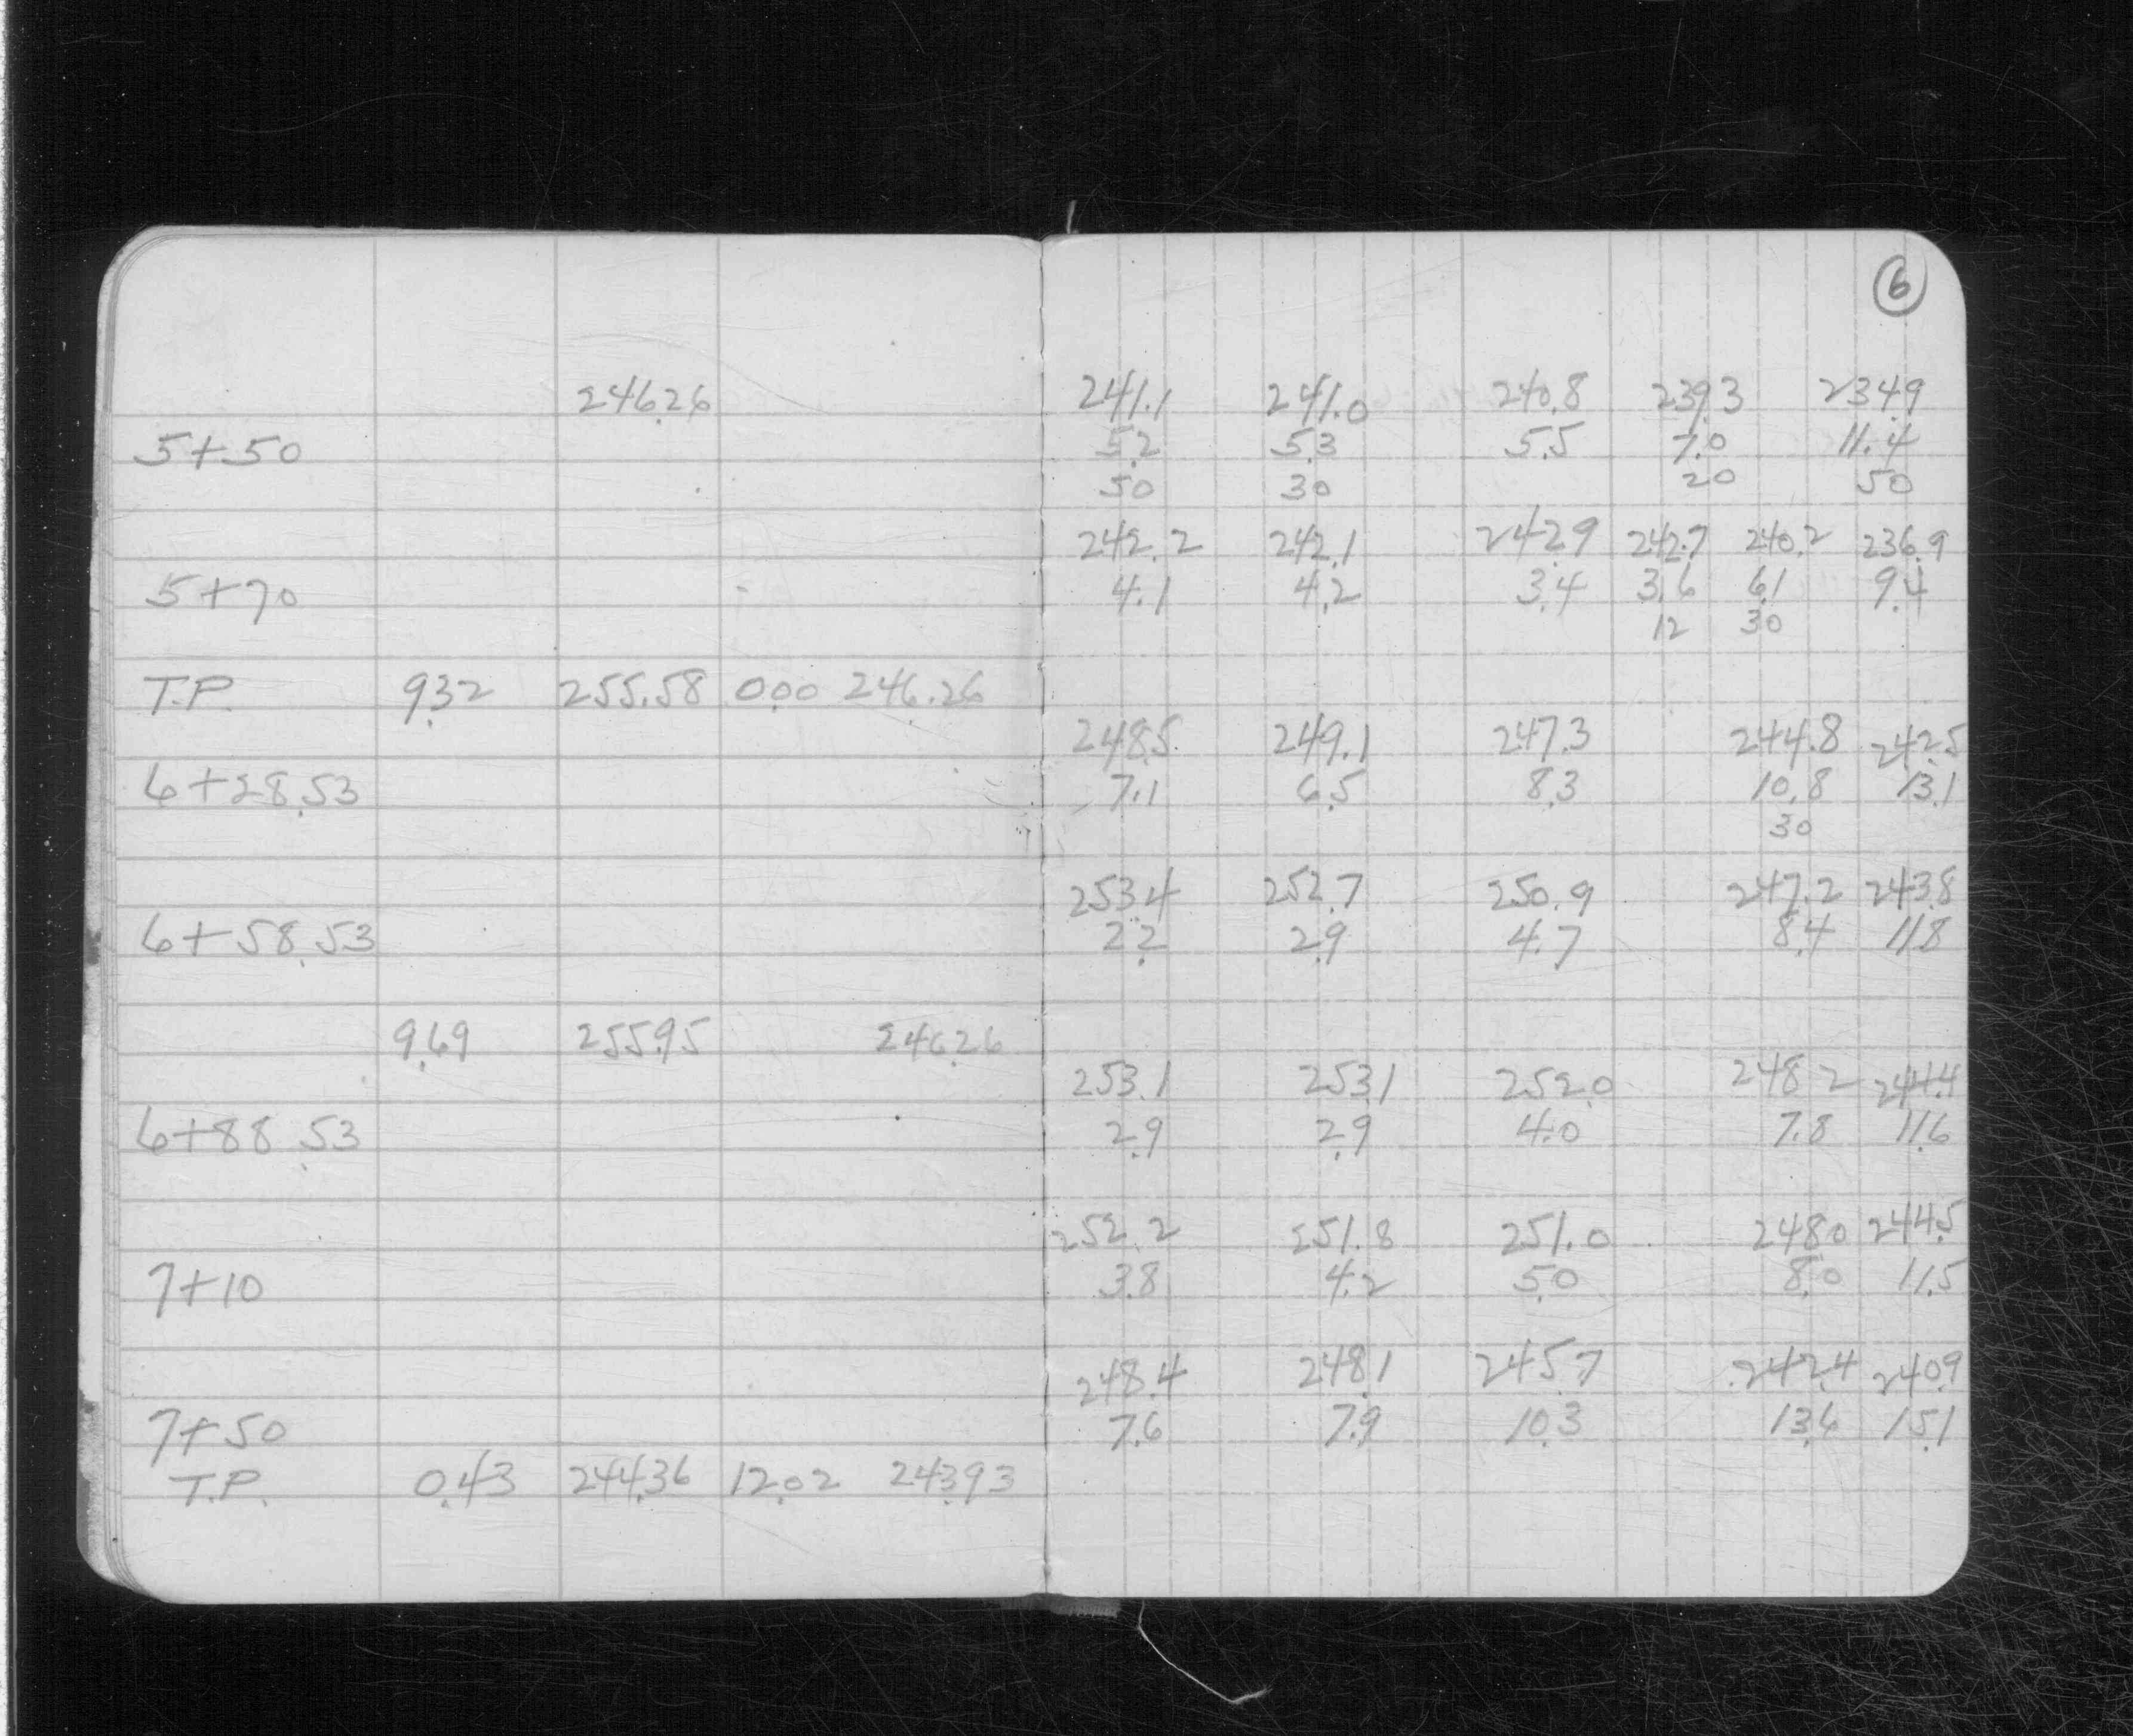 6
246.26 241.1 241.0 240.8 239.3 234.9
5+50 5.2 5.3 5.5 7.0 11.4
50 30 20 50
242.2 242.1 242.9 242.7 240.2 236.9
5+70 4.1 4.2 3.4 3.6 6.1 9.4
12 30
T.P. 9.32 255.58 0.00 246.26
248.5 249.1 247.3 244.8 242.5
6+28.53 7.1 6.5 8.3 10.8 13.1
30
253.4 252.7 250.9 247.2 243.8
6+58.53 2.2 2.9 4.7 8.4 11.8
9.69 255.95 246.26
253.1 253.1 252.0 248.2 244.4
6+88.53 2.9 2.9 4.0 7.8 11.6
252.2 251.8 251.0 248.0 244.5
7+10 3.8 4.2 5.0 8.0 11.5
248.4 248.1 245.7 242.4 240.9
7+50 7.6 7.9 10.3 13.6 15.1
T.P. 0.43 244.36 12.02 243.93